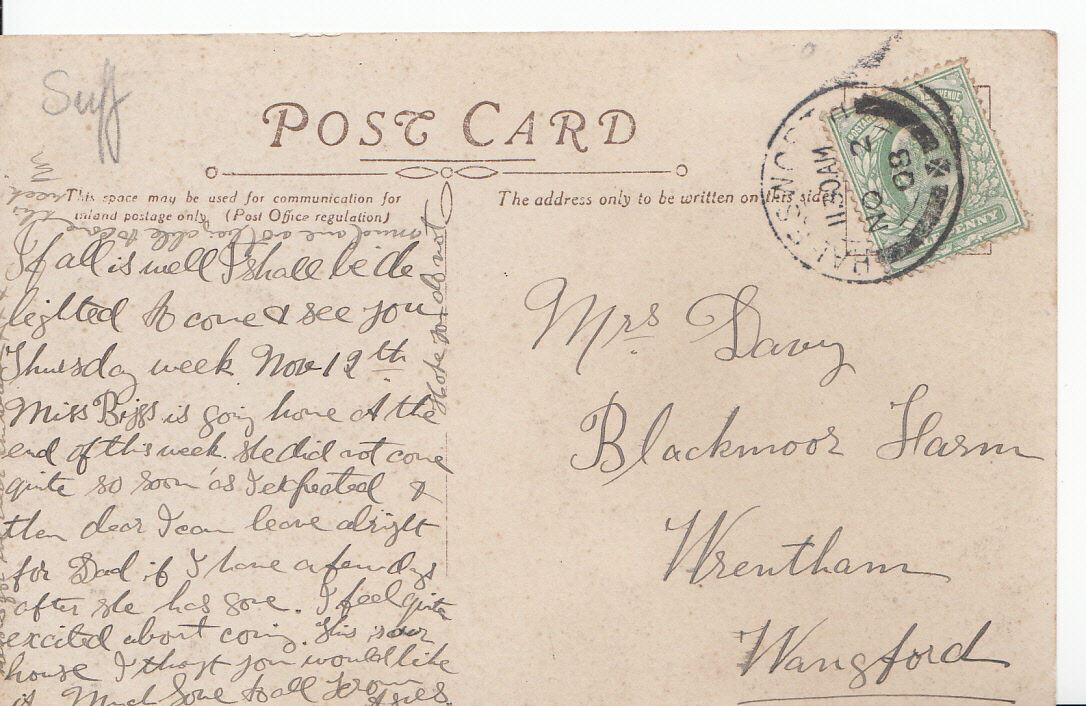 Suff
POST CARD
This space may be used for communication for
inland postage only (Post Office regulation)
The address only to be written on this side
HALESWORTH
11.30AM
NO 2
08
If all is well I shall be de
lighted to come & see you
Thursday week Nov 12th
Miss Biggs is going home at the
end of this week. She did not come
quite so soon as I expected &
then dear I can leave alright
for Dad if I have a few days
after she has gone. I feel quite
excited about coming. This is our
house I thought you would like
it Much love to all from
Mrs Davy
Blackmoor Farm
Wrentham
Wangford